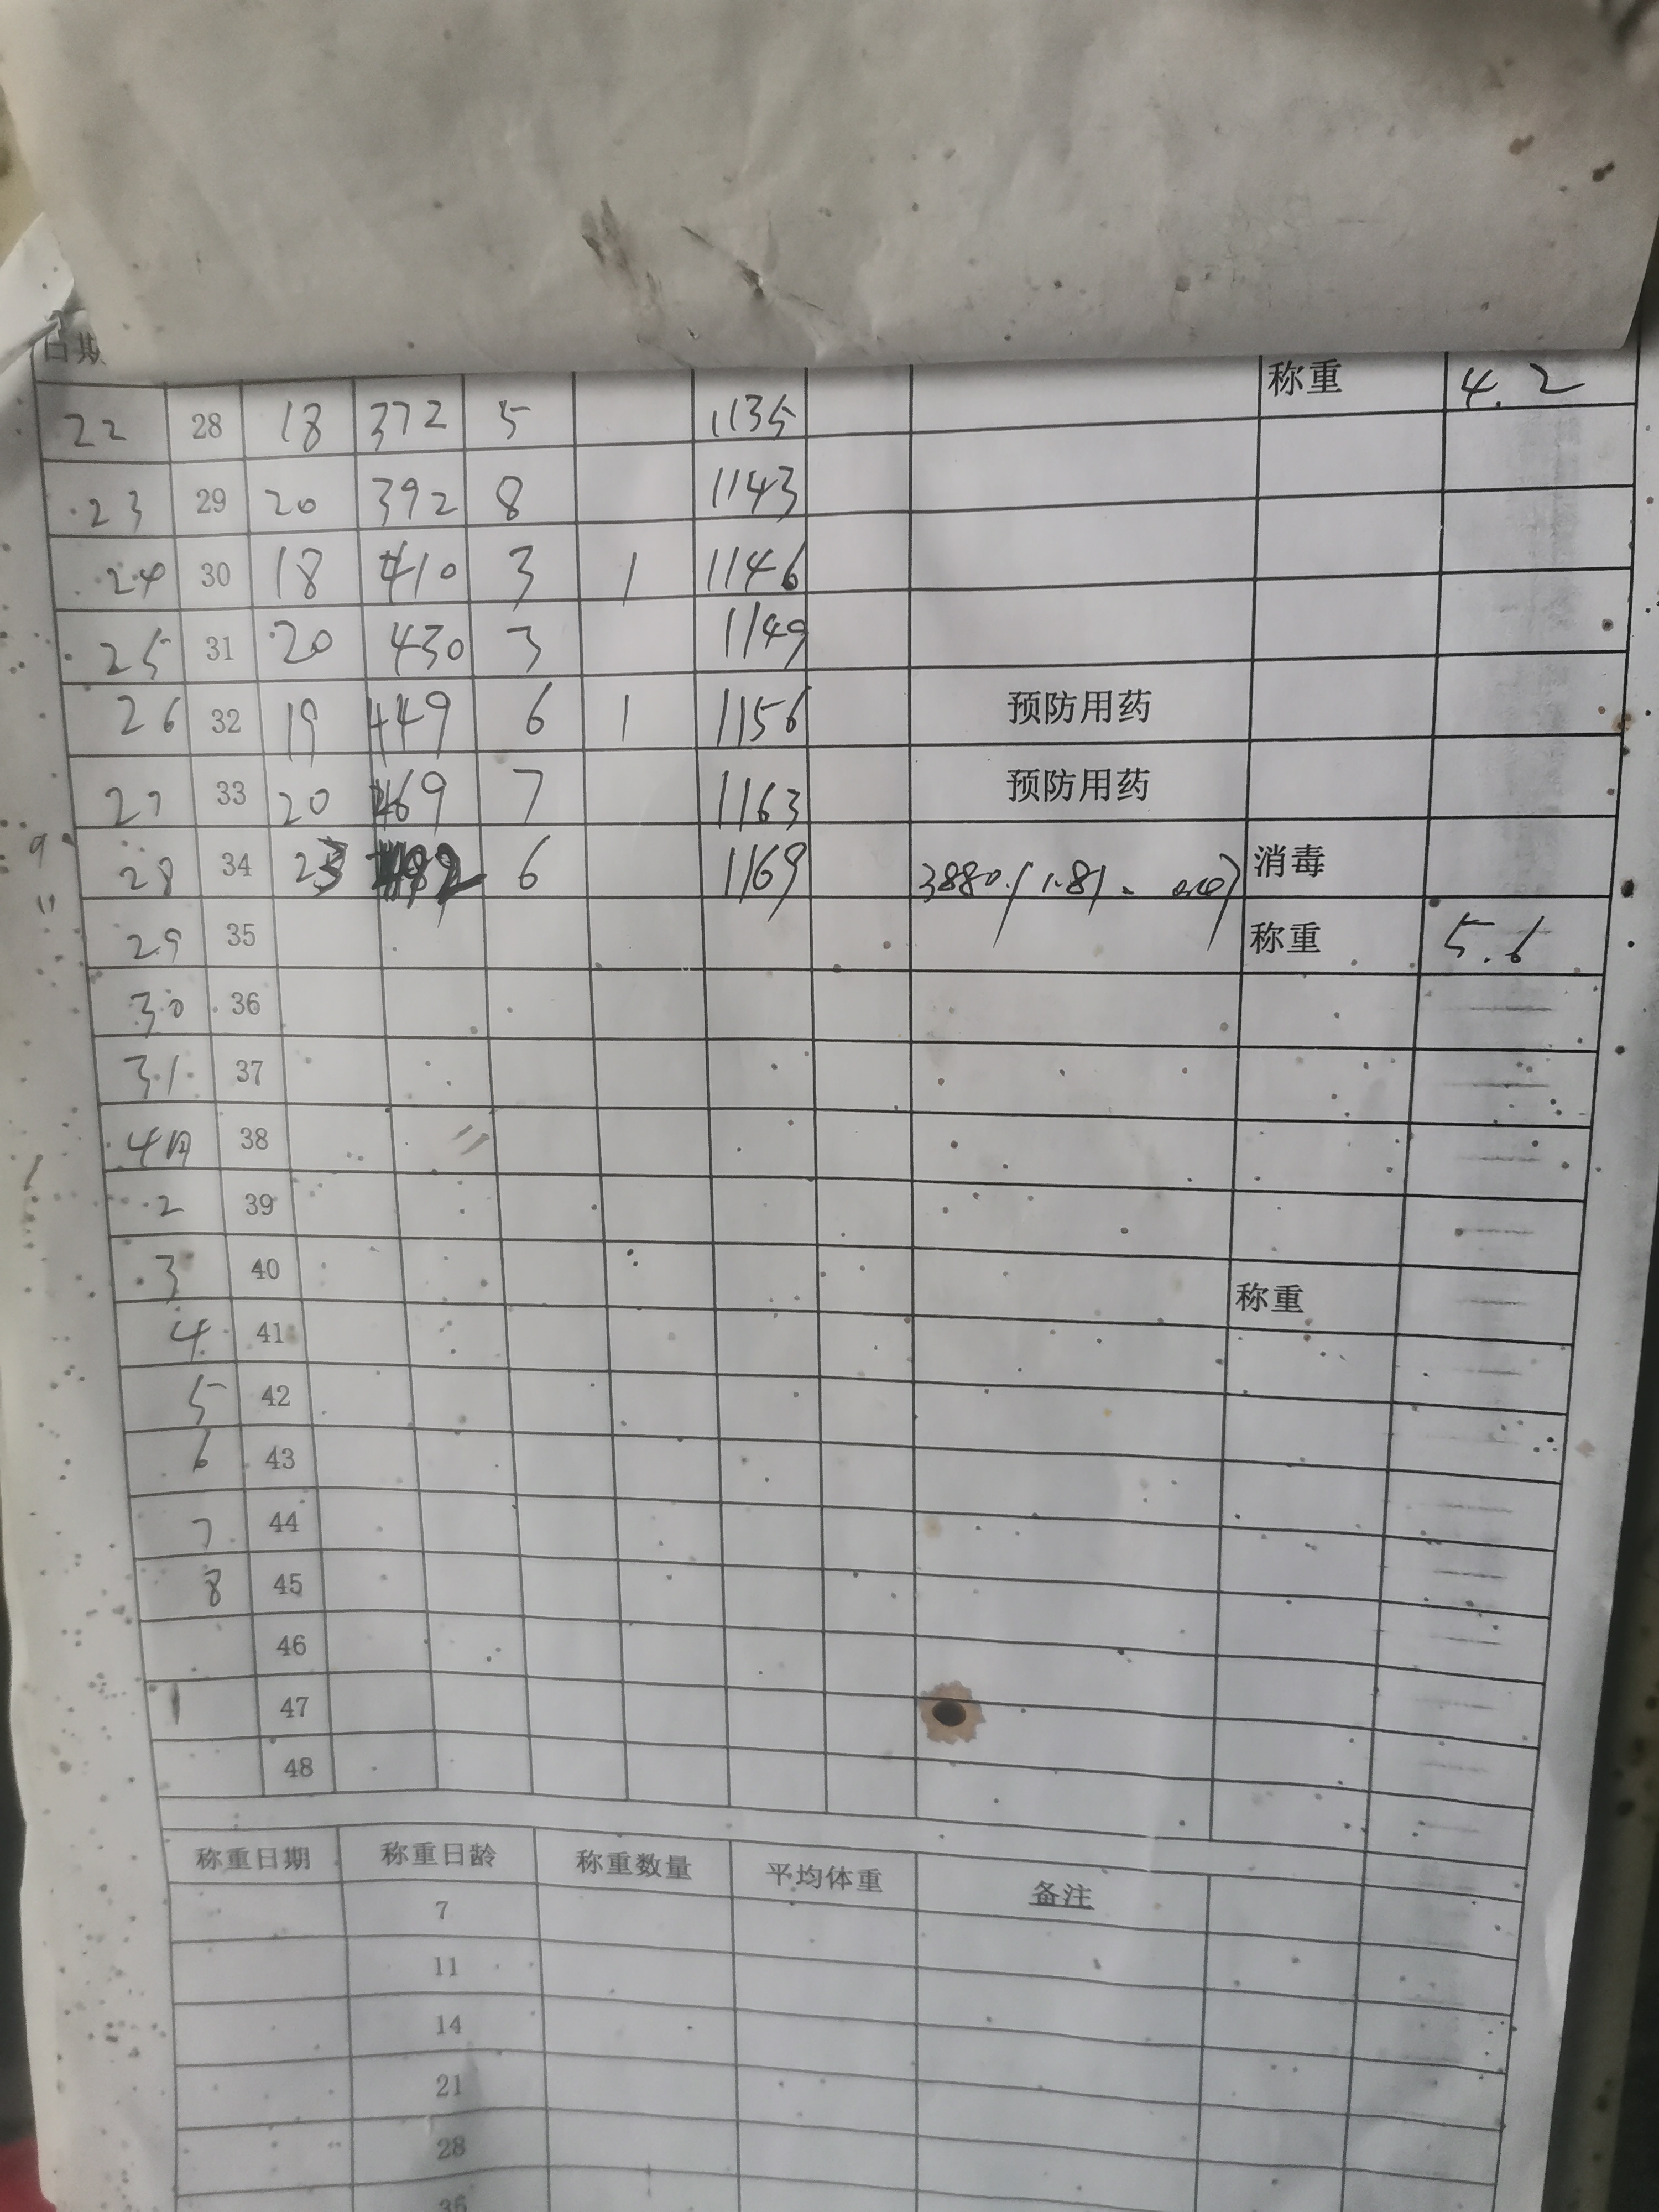 日期 称重 4.2
22 28 18 372 5 1135
23 29 20 392 8 1143
24 30 18 410 3 1 1146
25 31 20 430 3 1149
26 32 19 449 6 1 1156 预防用药
27 33 20 469 7 1163 预防用药
28 34 23 492 6 1169 3880.(1.81. 消毒
29 35 称重 5.6
30 36
31 37
4月 38
2 39
3 40 称重
4 41
5 42
6 43
7 44
8 45
46
47
48
称重日期 称重日龄 称重数量 平均体重 备注
7
11
14
21
28
9
11